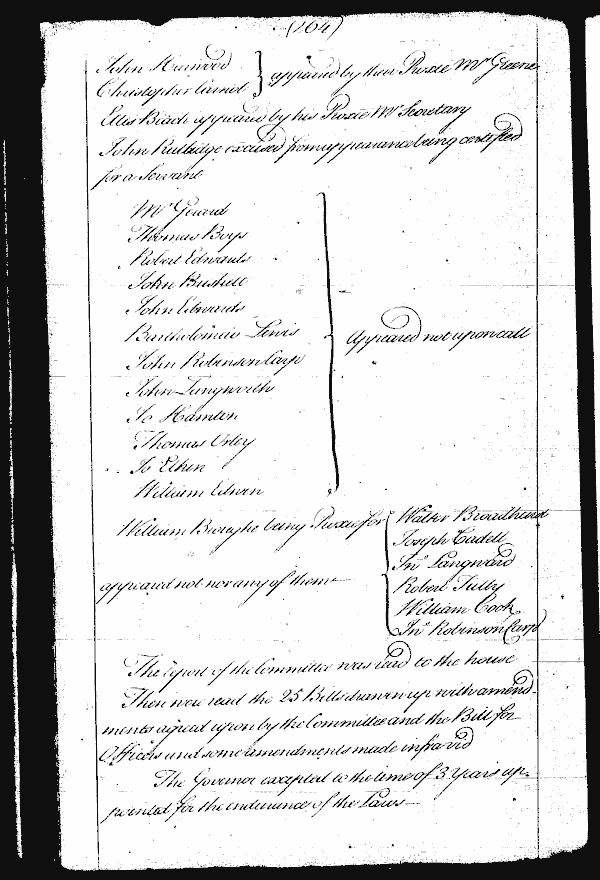 (264)
John Harwood
Christopher Carnol } appeared by their Proxie Mr Greene
Ellis Beach appeared by his Proxie Mr Secretary
John Rutlidge excused from appearance being certified
for a Servant
Mr Gerard
Thomas Boys
Robert Edwards
John Bushell
John Edwards
Bartholomew Lewis
John Robinson Carp
John Langworth
Jo Hamton
Thomas Orley
Jo Elkin
William Edwin
} Appeared not upon call
William Broughe being Proxie for {
Walter Broadhurst
Joseph Cadell
Jno Langward
Robert Tutty
William Cook
Jno Robinson Carp
appeared not nor any of them
The report of the Committee was read to the house
Then were read the 25 Bills drawn up with amend-
ments agreed upon by the Committee and the Bill for
Officers and some amendments made in fra vid
The Governor excepted to the time of 3 years ap-
pointed for the endurence of the Laws